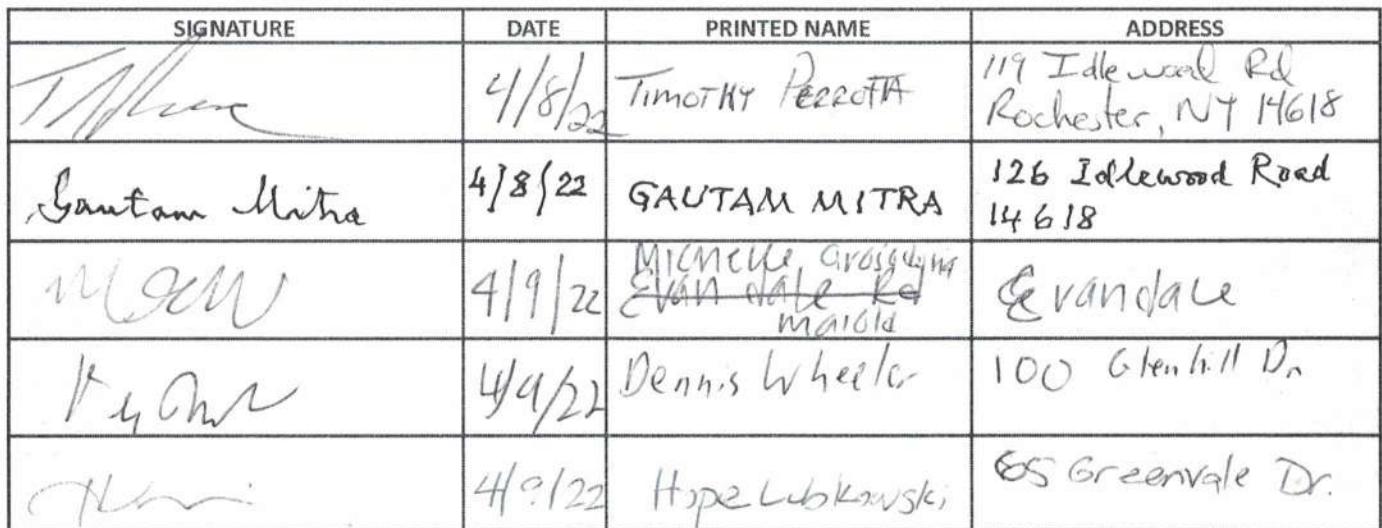 SIGNATURE DATE PRINTED NAME ADDRESS
4/8/22 TIMOTHY PERROTTA 119 Idlewood Rd
Rochester, NY 14618
Gautam Mitra 4/8/22 GAUTAM MITRA 126 Idlewood Road
14618
4/9/22 Michelle Evandale
Evandale Rd
4/9/22 Dennis Wheeler 100 Glenhill Dr
4/?/22 Hope Lubkowski 65 Greenvale Dr.